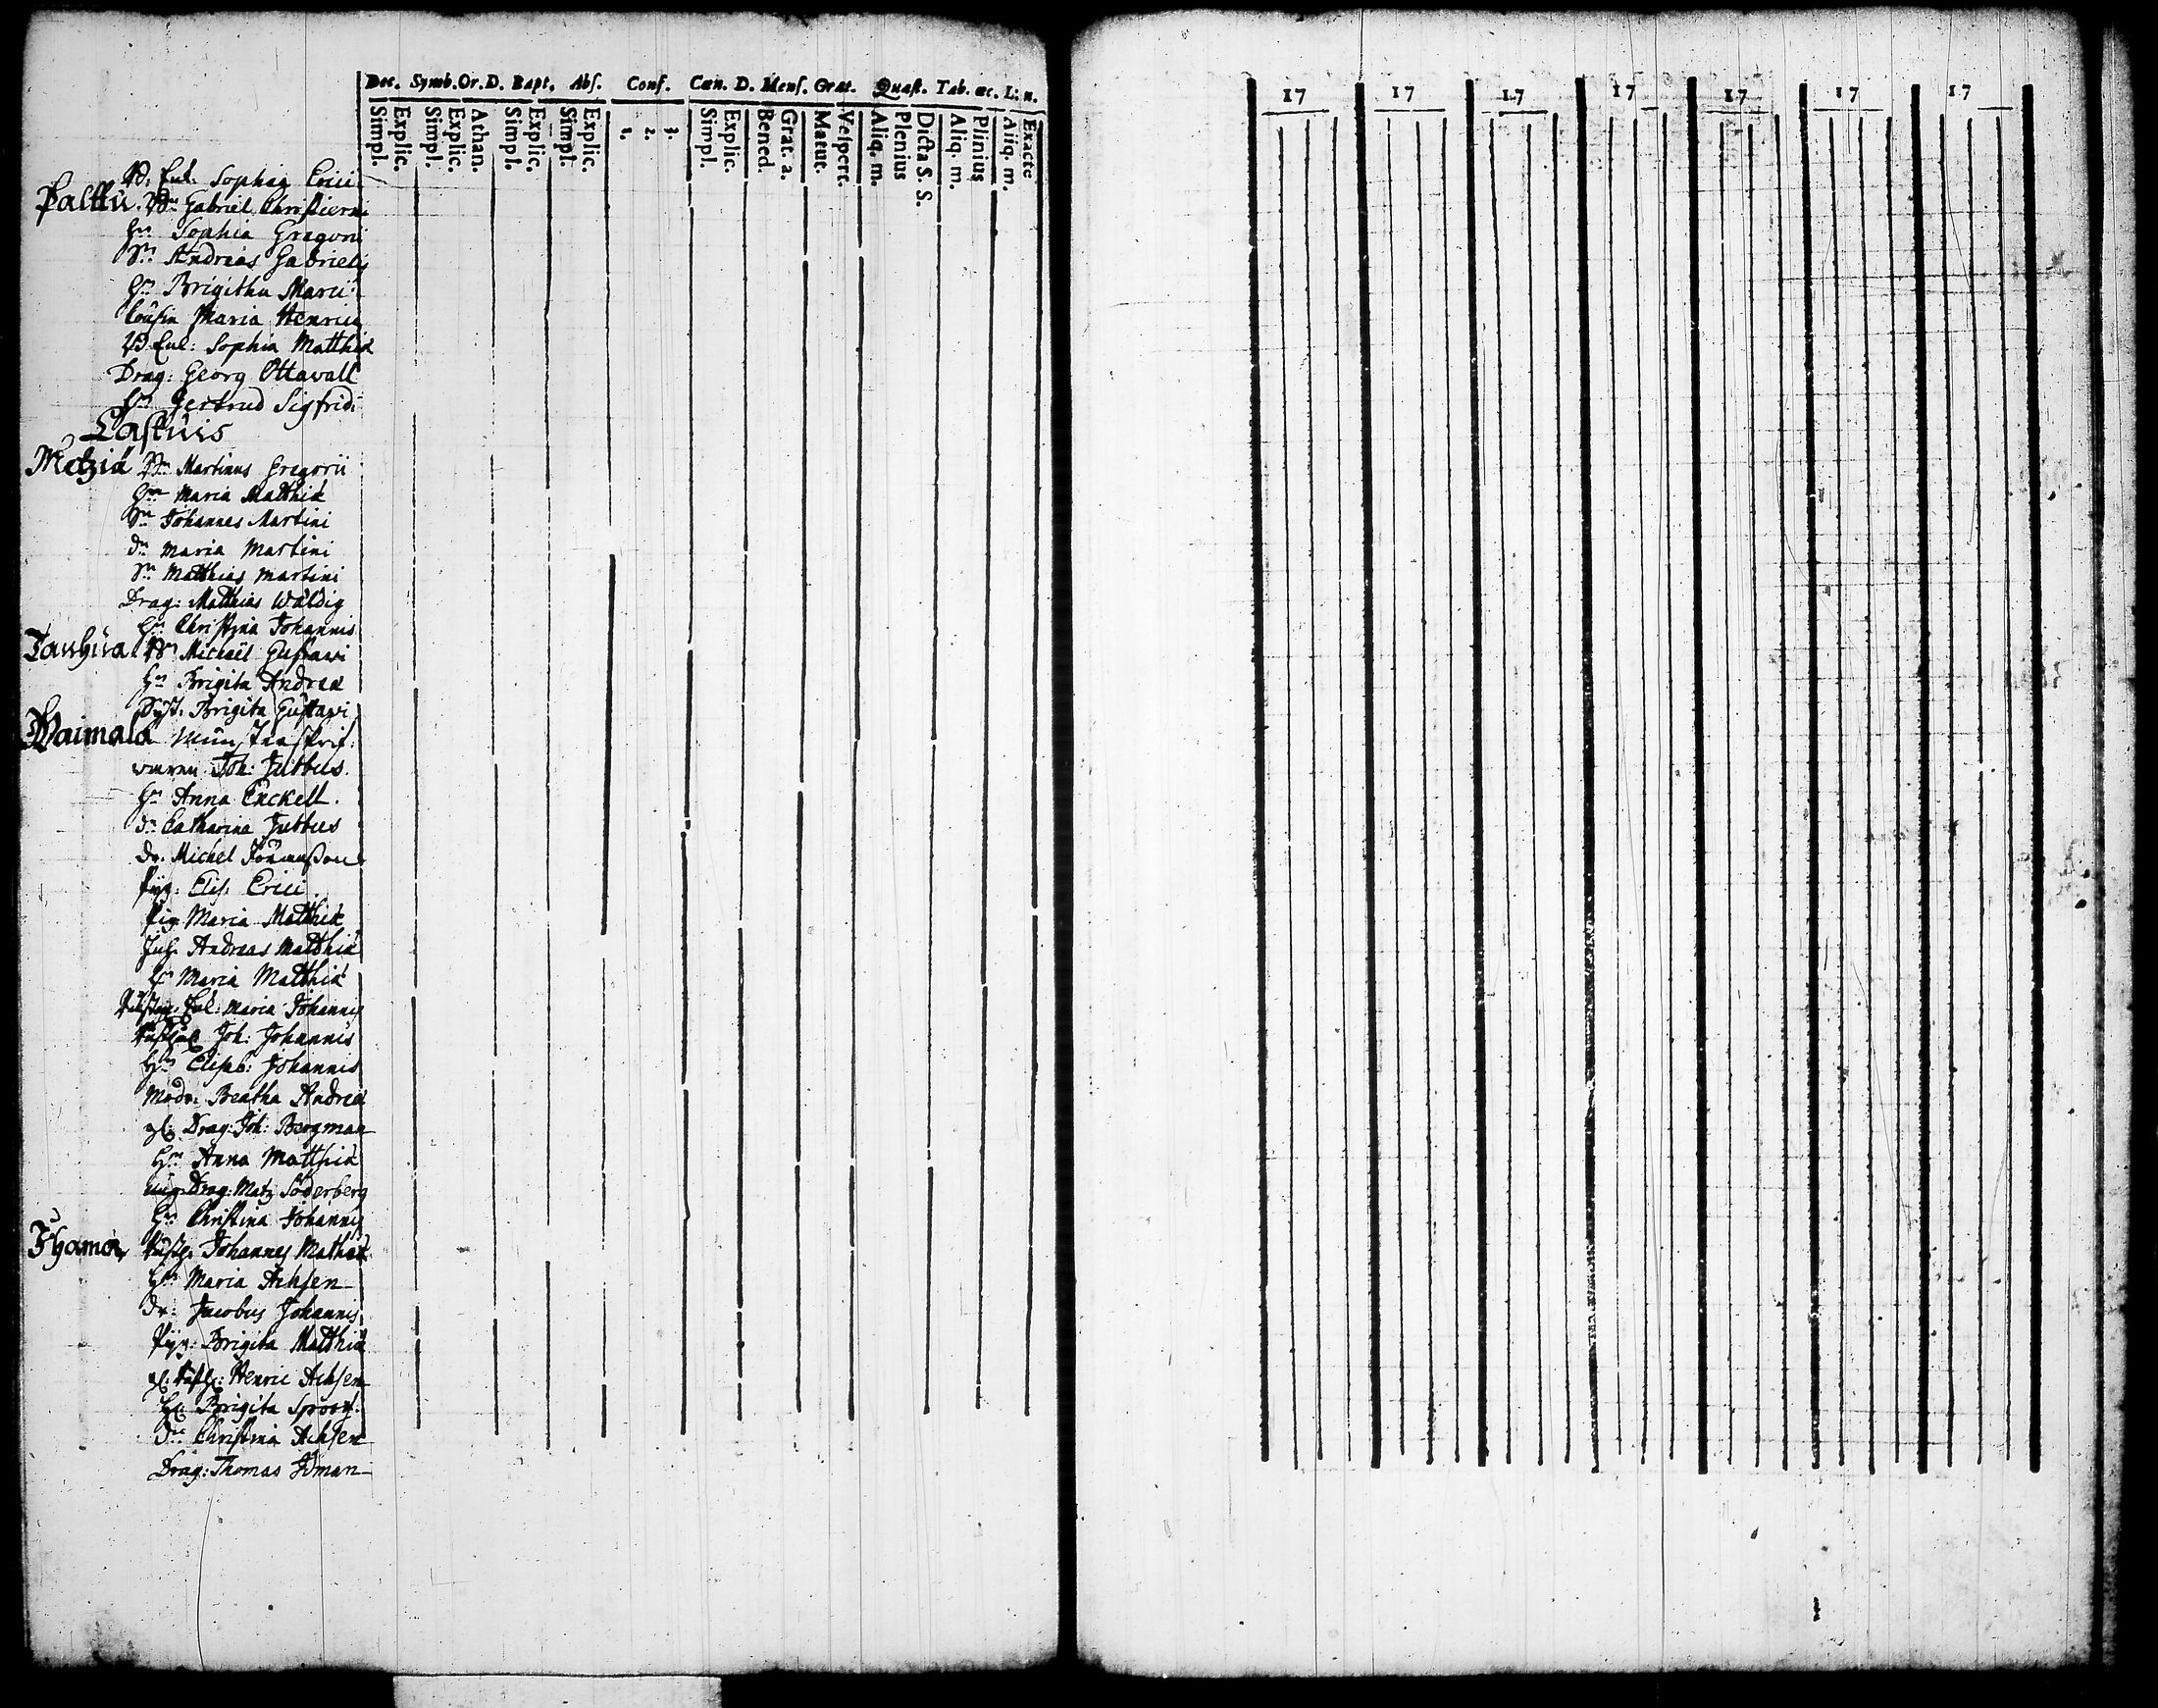 Dec. Symb. Or. D. Bapt. Abs. Conf. Cœn. D. Mens. Grat. Quæst. Tab. œc. L: n.
Simpl. Explic. Simpl. Explic. Athan. Simpl. Explic. Simpl. Explic. 1. 2. 3. Simpl. Explic. Bened. Grat. a. Matut. Vespert. Aliq. m. Plenius Dicta S. S. Aliq. m. Plinius Aliq. m. Exacte
17 17 17 17 17 17 17
Sophia Erici
Palttu Gabriel Christierni
Hu Sophia Gregorii
Sn Andreas Gabrielis
Hu Brigitha Marci
Maria Henrici
Enl: Sophia Matthiæ
Drag: Georg Ottawall
Hu Gertrud Sigfridi
Castuis
Metziä Martinus Gregorii
Hu Maria Matthiæ
Sn Johannes Martini
dr Maria Martini
Sn Matthias Martini
Drag: Matthias Wäldig
Hu Christina Johannis
Tanhua Michäel Gustavi
Hu Brigita Andreæ
Syst: Brigita Gustavi
Waimala
Joh: Juthus
Hu Anna Enckell.
dr Catharina Juthus
dr. Michel
Pig: Elis: Erici
Pig Maria Matthiæ
Inh. Andreas Matthiæ
Hu Maria Matthiæ
Enl: Maria Johannis
Joh: Johannis
Hu Elisab: Johannis
Modr: Beatha Andreæ
gl: Drag: Joh: Bergman
Hu Anna Matthiæ
ung Drag: Matz Söderberg
Hu Christina Johannis
Johannes Mathiæ
Hu Maria Achsen
dr: Jacobus Johannis
Pig: Brigita Matthiæ
gl: Henric Achsen
Hu Brigita
dr Christina Achsen
Drag: Thomas Idman